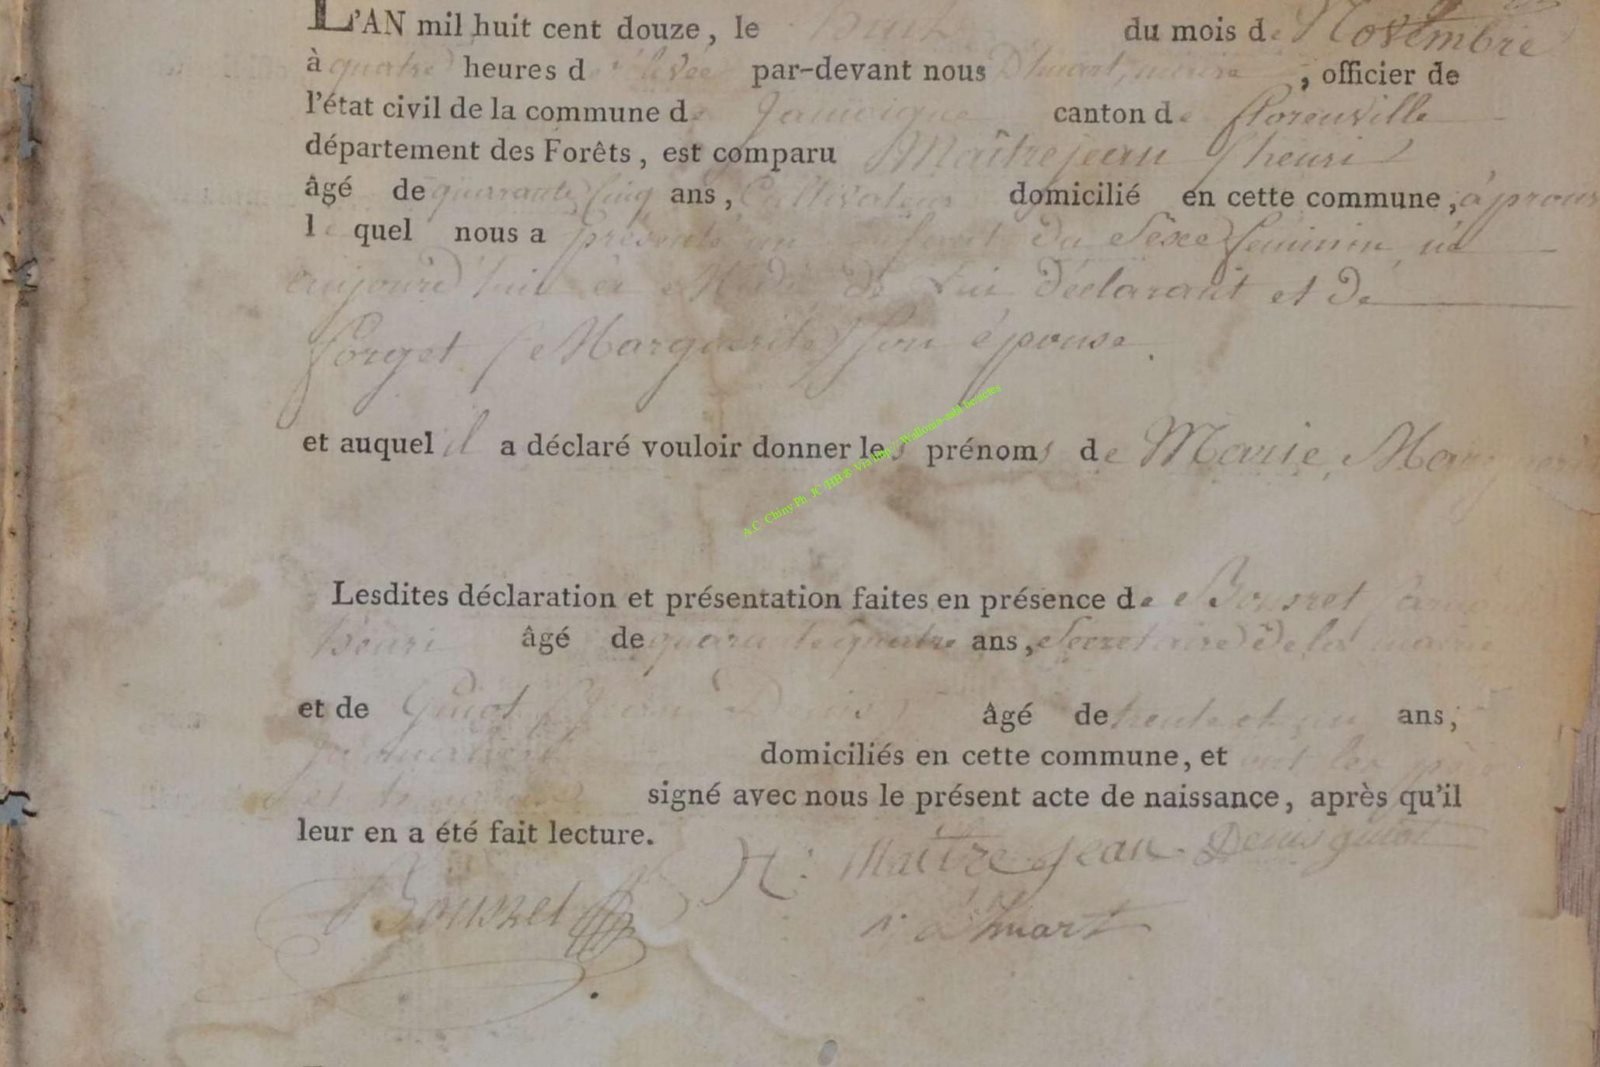 L'AN mil huit cent douze, le huit du mois de Novembre
à quatre heures de relevée par-devant nous Dhuart, maire, officier de
l'état civil de la commune de Jamoigne canton de florenville
département des Forêts, est comparu Maîtrejean (henri)
âgé de quarante cinq ans, Cultivateur domicilié en cette commune,
lequel nous a présenté un enfant du Sexe feminin né
aujourd'hui à Midi de Lui déclarant et de
forget (Marguerite) son épouse.
et auquel il a déclaré vouloir donner les prénoms de Marie
A.C. Chiny.Ph. JC
Lesdites déclaration et présentation faites en présence de Bousret
henri âgé de quarante quatre ans, Secretaire de la mairie
et de Guiot âgé de trente et un ans,
domiciliés en cette commune, et ont les
signé avec nous le présent acte de naissance, après qu'il
leur en a été fait lecture.
H: Maitre Jean Denis guiot
Bousret Dhuart